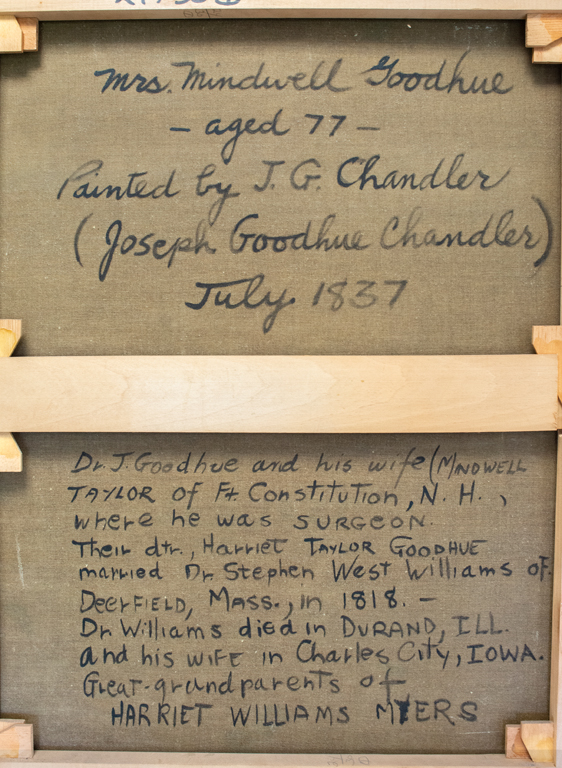 Mrs. Mindwell Goodhue
- aged 77 -
Painted by J. G. Chandler
(Joseph Goodhue Chandler)
July. 1837
Dr. J. Goodhue and his wife (MINDWELL
TAYLOR of Ft. Constitution, N. H.,
where he was SURGEON.
Their dtr., Harriet TAYLOR GOODHUE
married Dr Stephen West Williams of
DEERFIELD, MASS., in 1818. -
Dr. Williams died in DURAND, ILL.
and his WIFE in Charles City, IOWA.
Great-grandparents of
HARRIET WILLIAMS MYERS